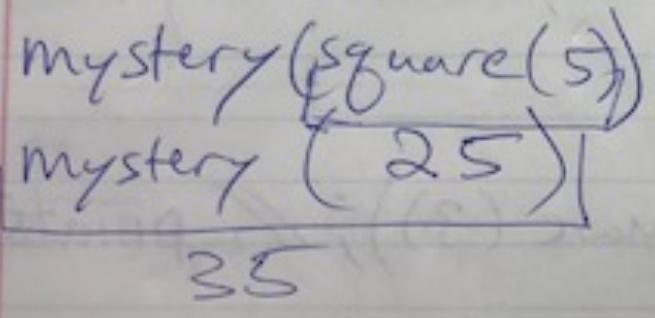 mystery(square(5))
mystery(25)
35